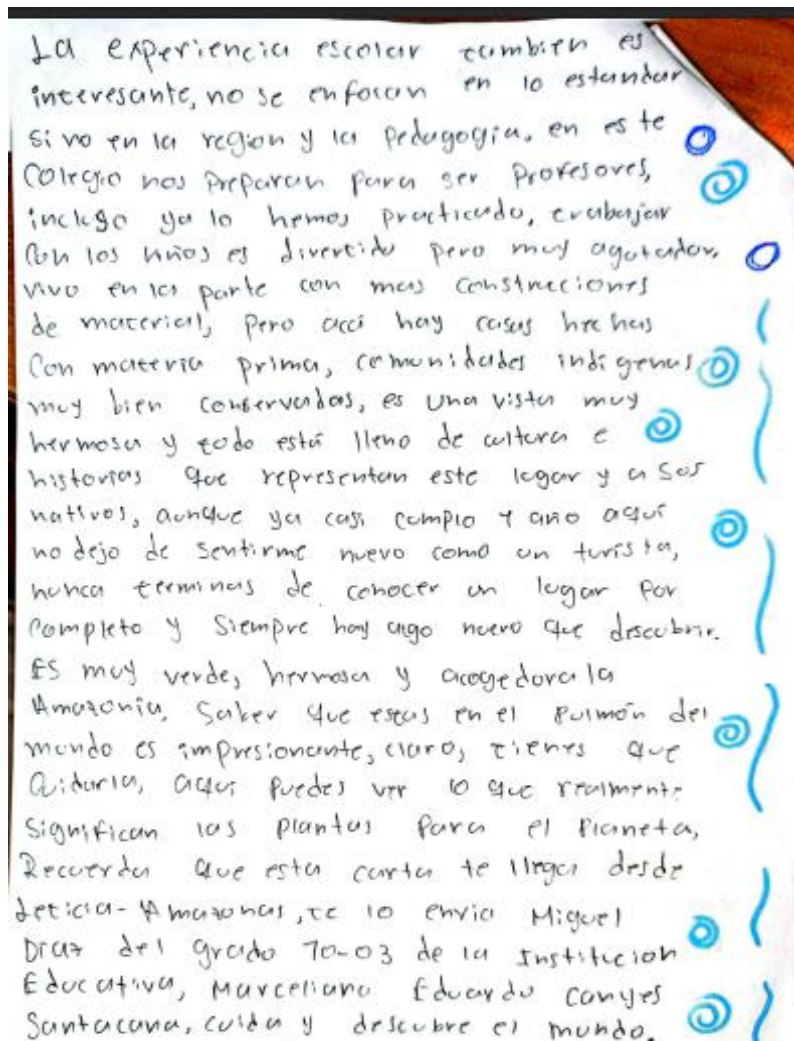 La experiencia escolar tambien es
interesante, no se enfocan en lo estandar
si no en la region y la pedagogia, en este
Colegio nos preparan para ser profesores,
inclgso ya lo hemos practicado, trabajar
Con los niños es divertido pero muy agotador,
vivo en la parte con mas construciones
de material, pero acá hay casas hechas
Con materia prima, comunidades indigenas
muy bien conservadas, es una vista muy
hermosa y todo está lleno de cultura e
historias que representan este lugar y a sus
nativos, aunque ya casi cumplo 1 año aquí
no dejo de sentirme nuevo como un turista,
nunca terminas de conocer un lugar por
Completo y siempre hay algo nuevo que descubrir.
ES muy verde, hermosa y acogedora la
Amazonia, Saber que estas en el Pulmón del
mundo es impresionante, claro, tienes que
Cuidarla, aqui puedes ver lo que realmente
significan las plantas para el Planeta,
Recuerda que esta carta te llega desde
Leticia-Amazonas, te lo envia Miguel
Diaz del grado 10-03 de la Institucion
Educativa, Marceliano Eduardo Canyes
Santacana, cuida y descubre el mundo.